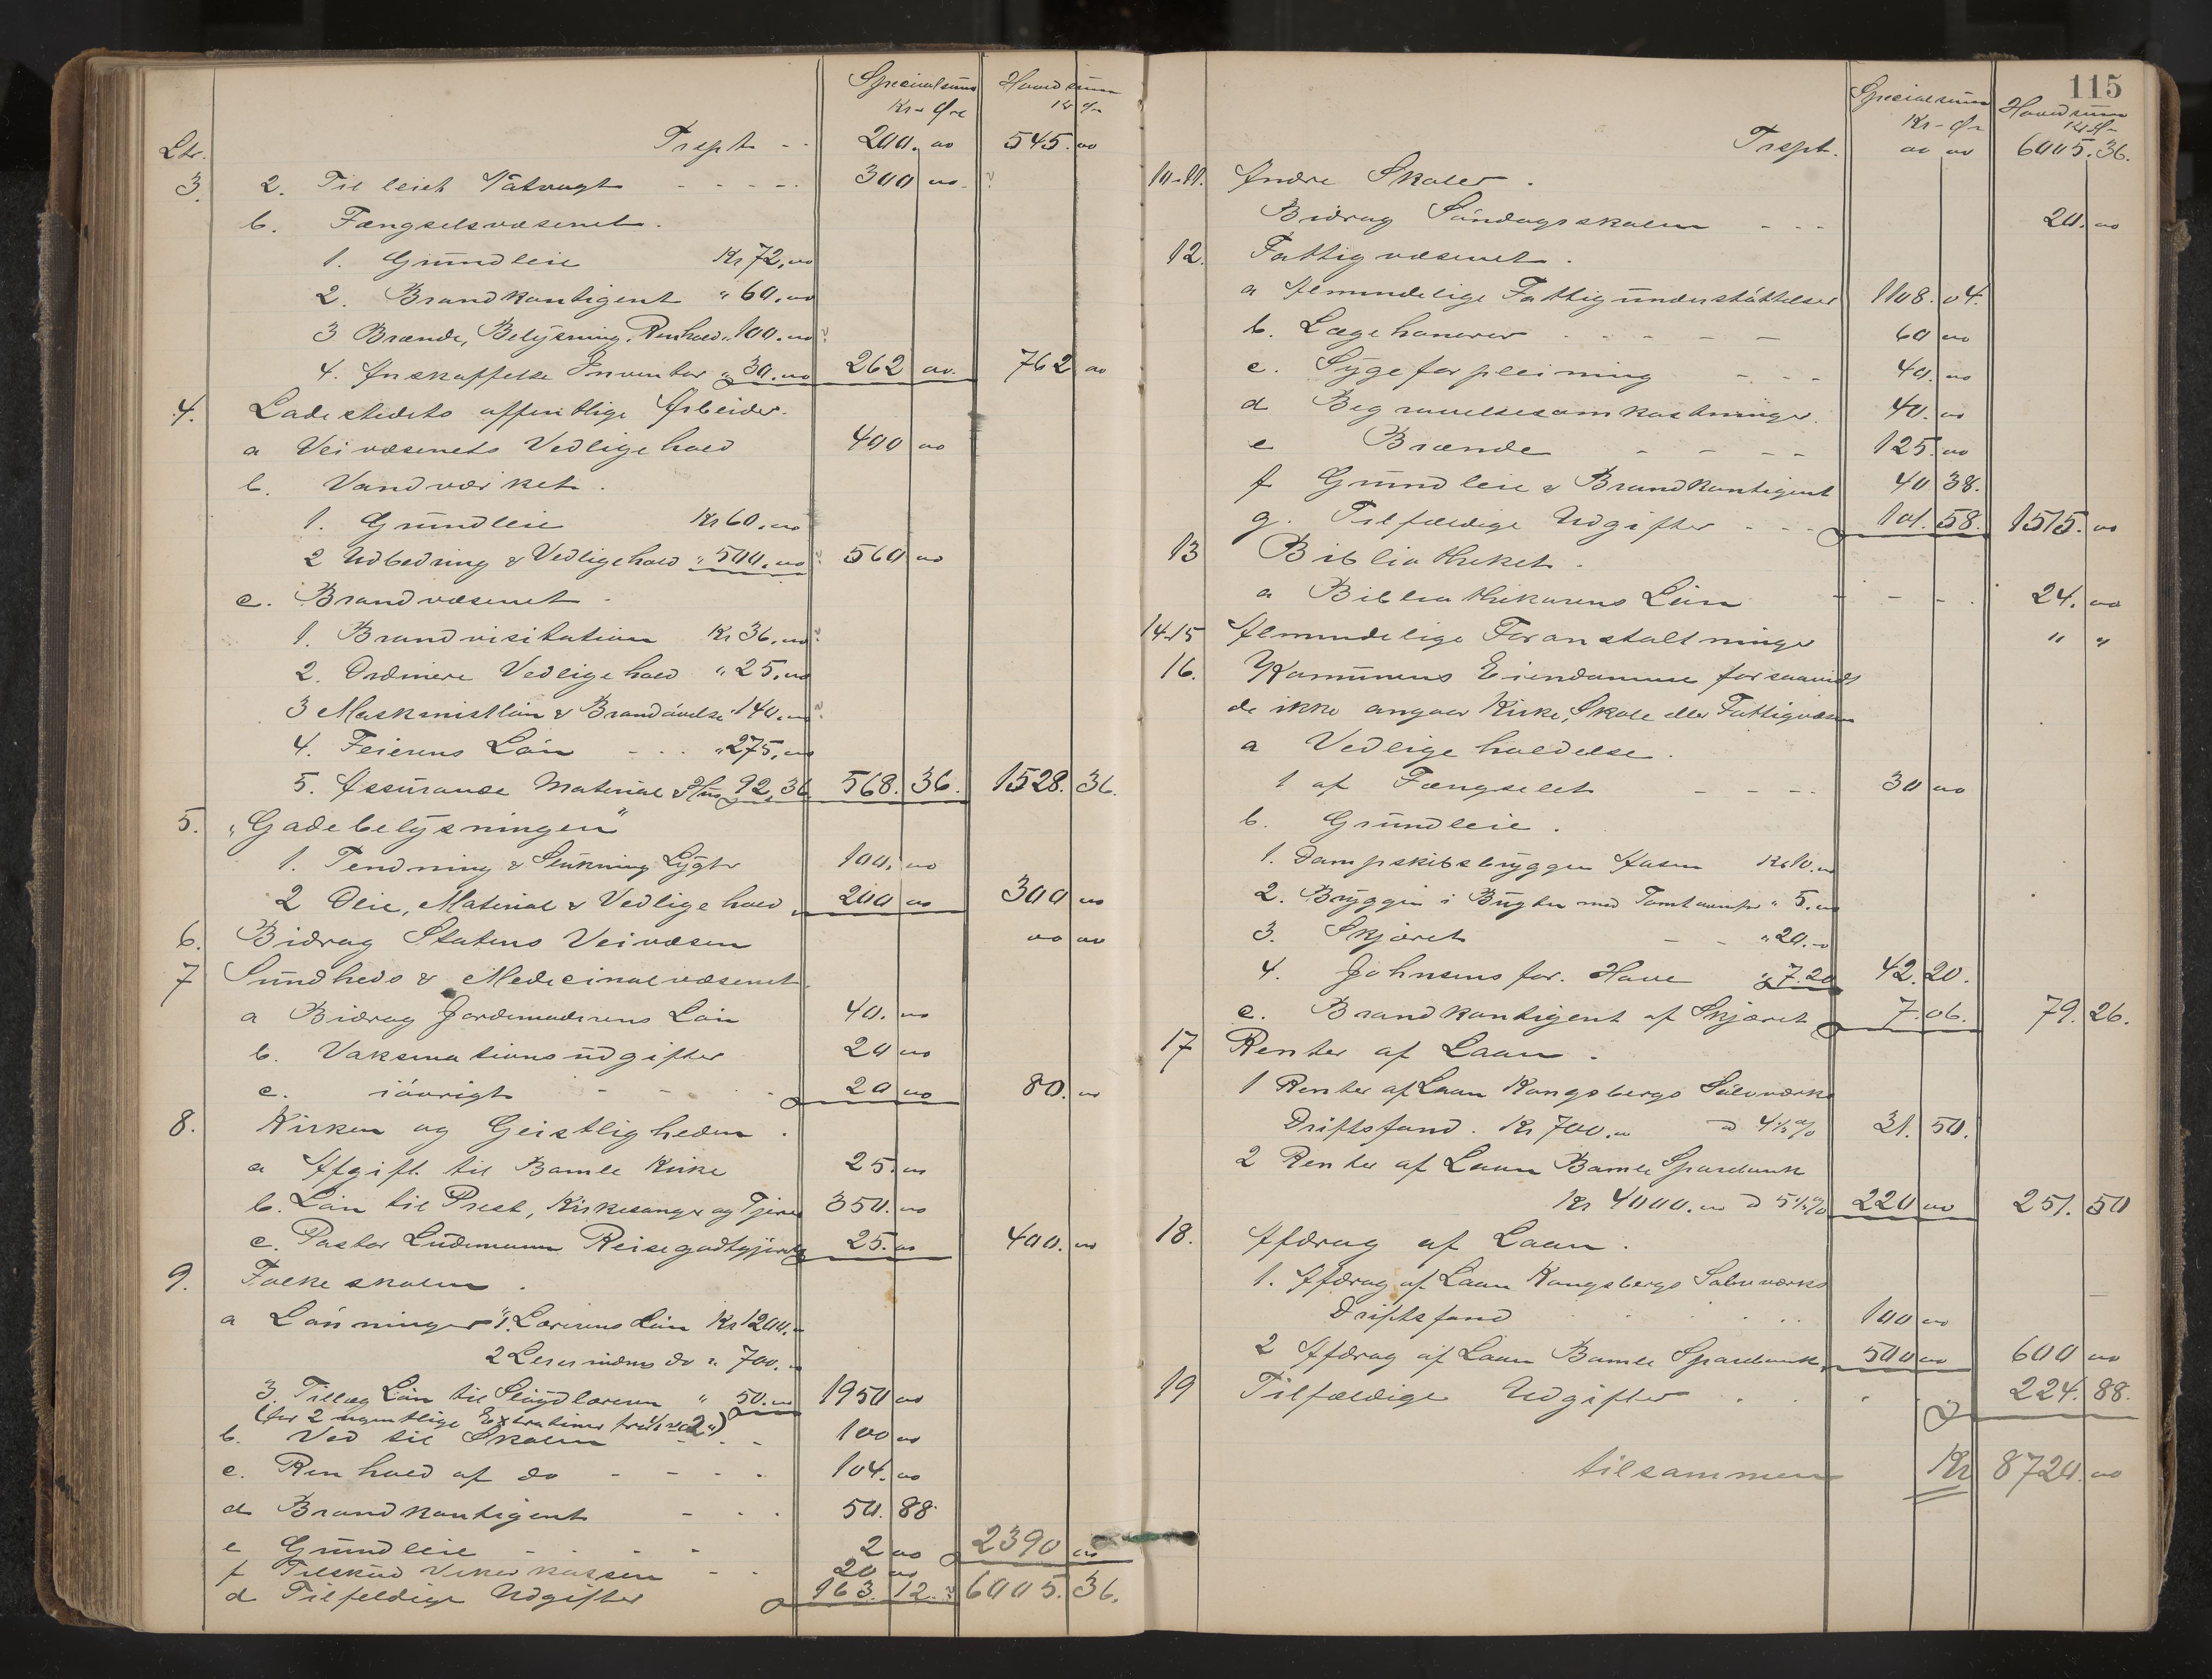 Specialsum Hovedsum
Kr - Øre Kr Ør
Ltr. Trspt - - 200. 00 545. 00
3. 2. Til leiet Natvagt - - - - - 300 00
b. Fængselsvæsenet.
1. Grundleie Kr 72,00
2. Brandkontigent " 60.00
3 Brænde, Belysning, Renhold " 100.00
4. Anskaffelse Inventar " 30.00 262 00. 762 00
4. Ladestedets offentlige Arbeider.
a Veivæsenets Vedligehold 400 00
b. Vandværket.
1. Grundleie Kr 60.00
2 Udbedring & Vedligehold " 500.00 560 00
c. Brandvæsenet -
1. Brandvisitation Kr 36.00
2. Ordinere Vedligehold " 25.00
3 Maskinistløn & Brandøvelse " 140.00
4. Feierens Løn - - . " 275.00
5. Assurance Material & Hus 92,36 568. 36. 1528. 36.
5. "Gadebelysningen"
1. Tendning & Slukning Lygter 100. 00
2 Olie, Material & Vedligehold 200 00 300 00
6. Bidrag Statens Veivæsen 00 00
7 Sundheds & Medicinalvæsenet.
a Bidrag Jordemoderens Løn 40. 00
b. Vaksinationsudgifter 20 00
c. iøvrigt - - - 20 00 80. 00
8. Kirken og Geistligheden.
a Afgift til Bamle Kirke 25. 00
b. Løn til Prest, Kirkesanger og Tjener 350. 00
c. Pastor Ludemann Reisegodtgjørelse 25. 00 400. 00
9. Folkeskolen.
a Lønninger "1. Lærerens Løn Kr 1200.00
2 Lererindens do " 700.00
3. Tillæg Løn til Sløydlæreren " 50.00 1950 00
(for 2 ugentlige Extratimer
b. Ved til Skolen - - - 100 00
c. Renhold af do - - - - 104. 00
d Brandkontigent - - - 50. 88
e Grundleie - - - - 2 00 2390 00
f Tilskud Vikerkassen - - 20 00
d Tilfeldige Udgifter 163. 12. 6005. 36.
115
Specialsum Hovedsum
Kr - Ør Kr Ør
Trspt. 00 00 6005. 36.
10-11. Andre Skoler.
Bidrag Søndagsskolen - - - 20. 00
12. Fattigvæsenet.
a Almindelige Fattigunderstøttelser 1108. 04.
b. Lægehonorar - - - - - 60 00
c. Sygeforpleining - - - 40. 00
d Begravelsesomkostninger. 40. 00
e Brænde - - - - 125. 00
f Grundleie & Brandkontigent 40 38.
g. Tilfældige Udgifter - - - 101. 58. 1515. 00
13 Bibliotheket.
a Bibliothekarens Løn - - - . 24. 00
14-15 Almindelige Foranstaltninger " "
16. Komunens Eiendomme forsaavidt
de ikke angaar Kirke, Skole eller Fattigvæsen
a Vedligeholdelse.
1 af Fængselet - - - - 30 00
b. Grundleie.
1. Dampskibsbryggen Aasen Kr 10.00
2. Bryggen i Bugten med " 5.00
3. Skjæret - - " 20.00
4. Johnsens for. Have " 7.20 42. 20.
c. Brandkontigent af Skjæret 7. 06. 79. 26.
17 Renter af Laan.
1 Renter af Laan Kongsbergs Sølvværks
Driftsfond. Kr 700.00 a 4½% 31. 50.
2 Renter af Laan Bamle Sparebank
Kr 4000.00 a 5½% 220 00 251. 50
18. Afdrag af Laan.
1. Afdrag af Laan Kongsbergs Sølvværks
Driftsfond 100 00
2 Afdrag af Laan Bamle Sparebank 500 00 600 00
19 Tilfældige Udgifter . . . . 224. 88.
tilsammen Kr 8720. 00